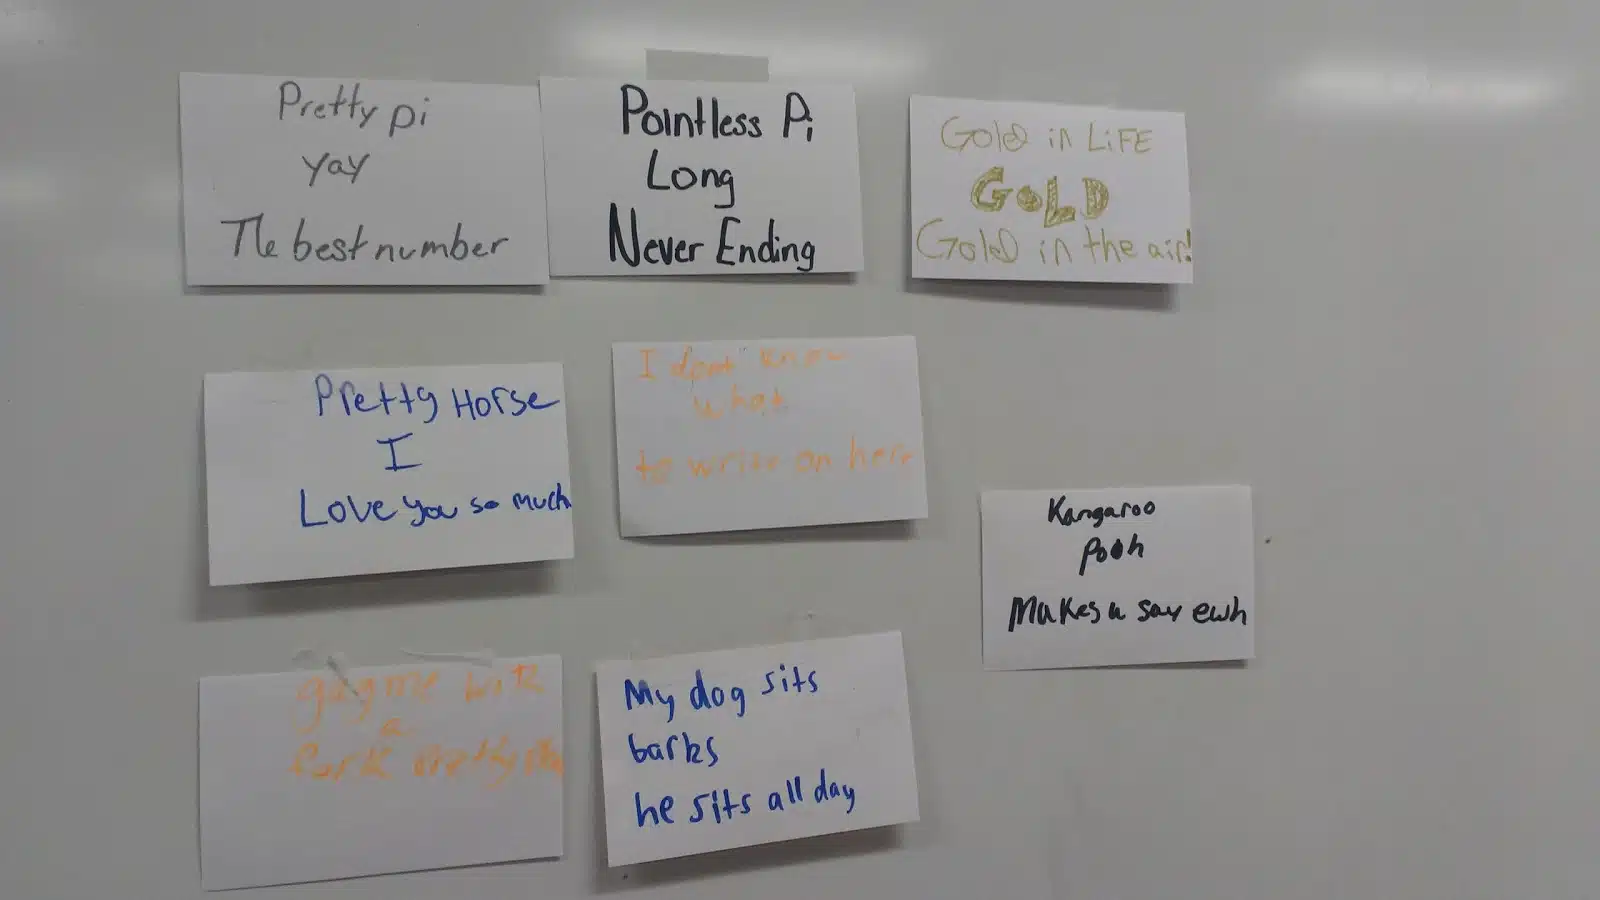 Pretty pi
yay
The best number
Pointless Pi
Long
Never Ending
Gold in LiFE
GOLD
Gold in the air!
Pretty Horse
I
Love you so much
I dont know
what
to write on here
Kangaroo
Pooh
Makes u say ewh
gag me with
a
fork pretty
My dog sits
barks
he sits all day